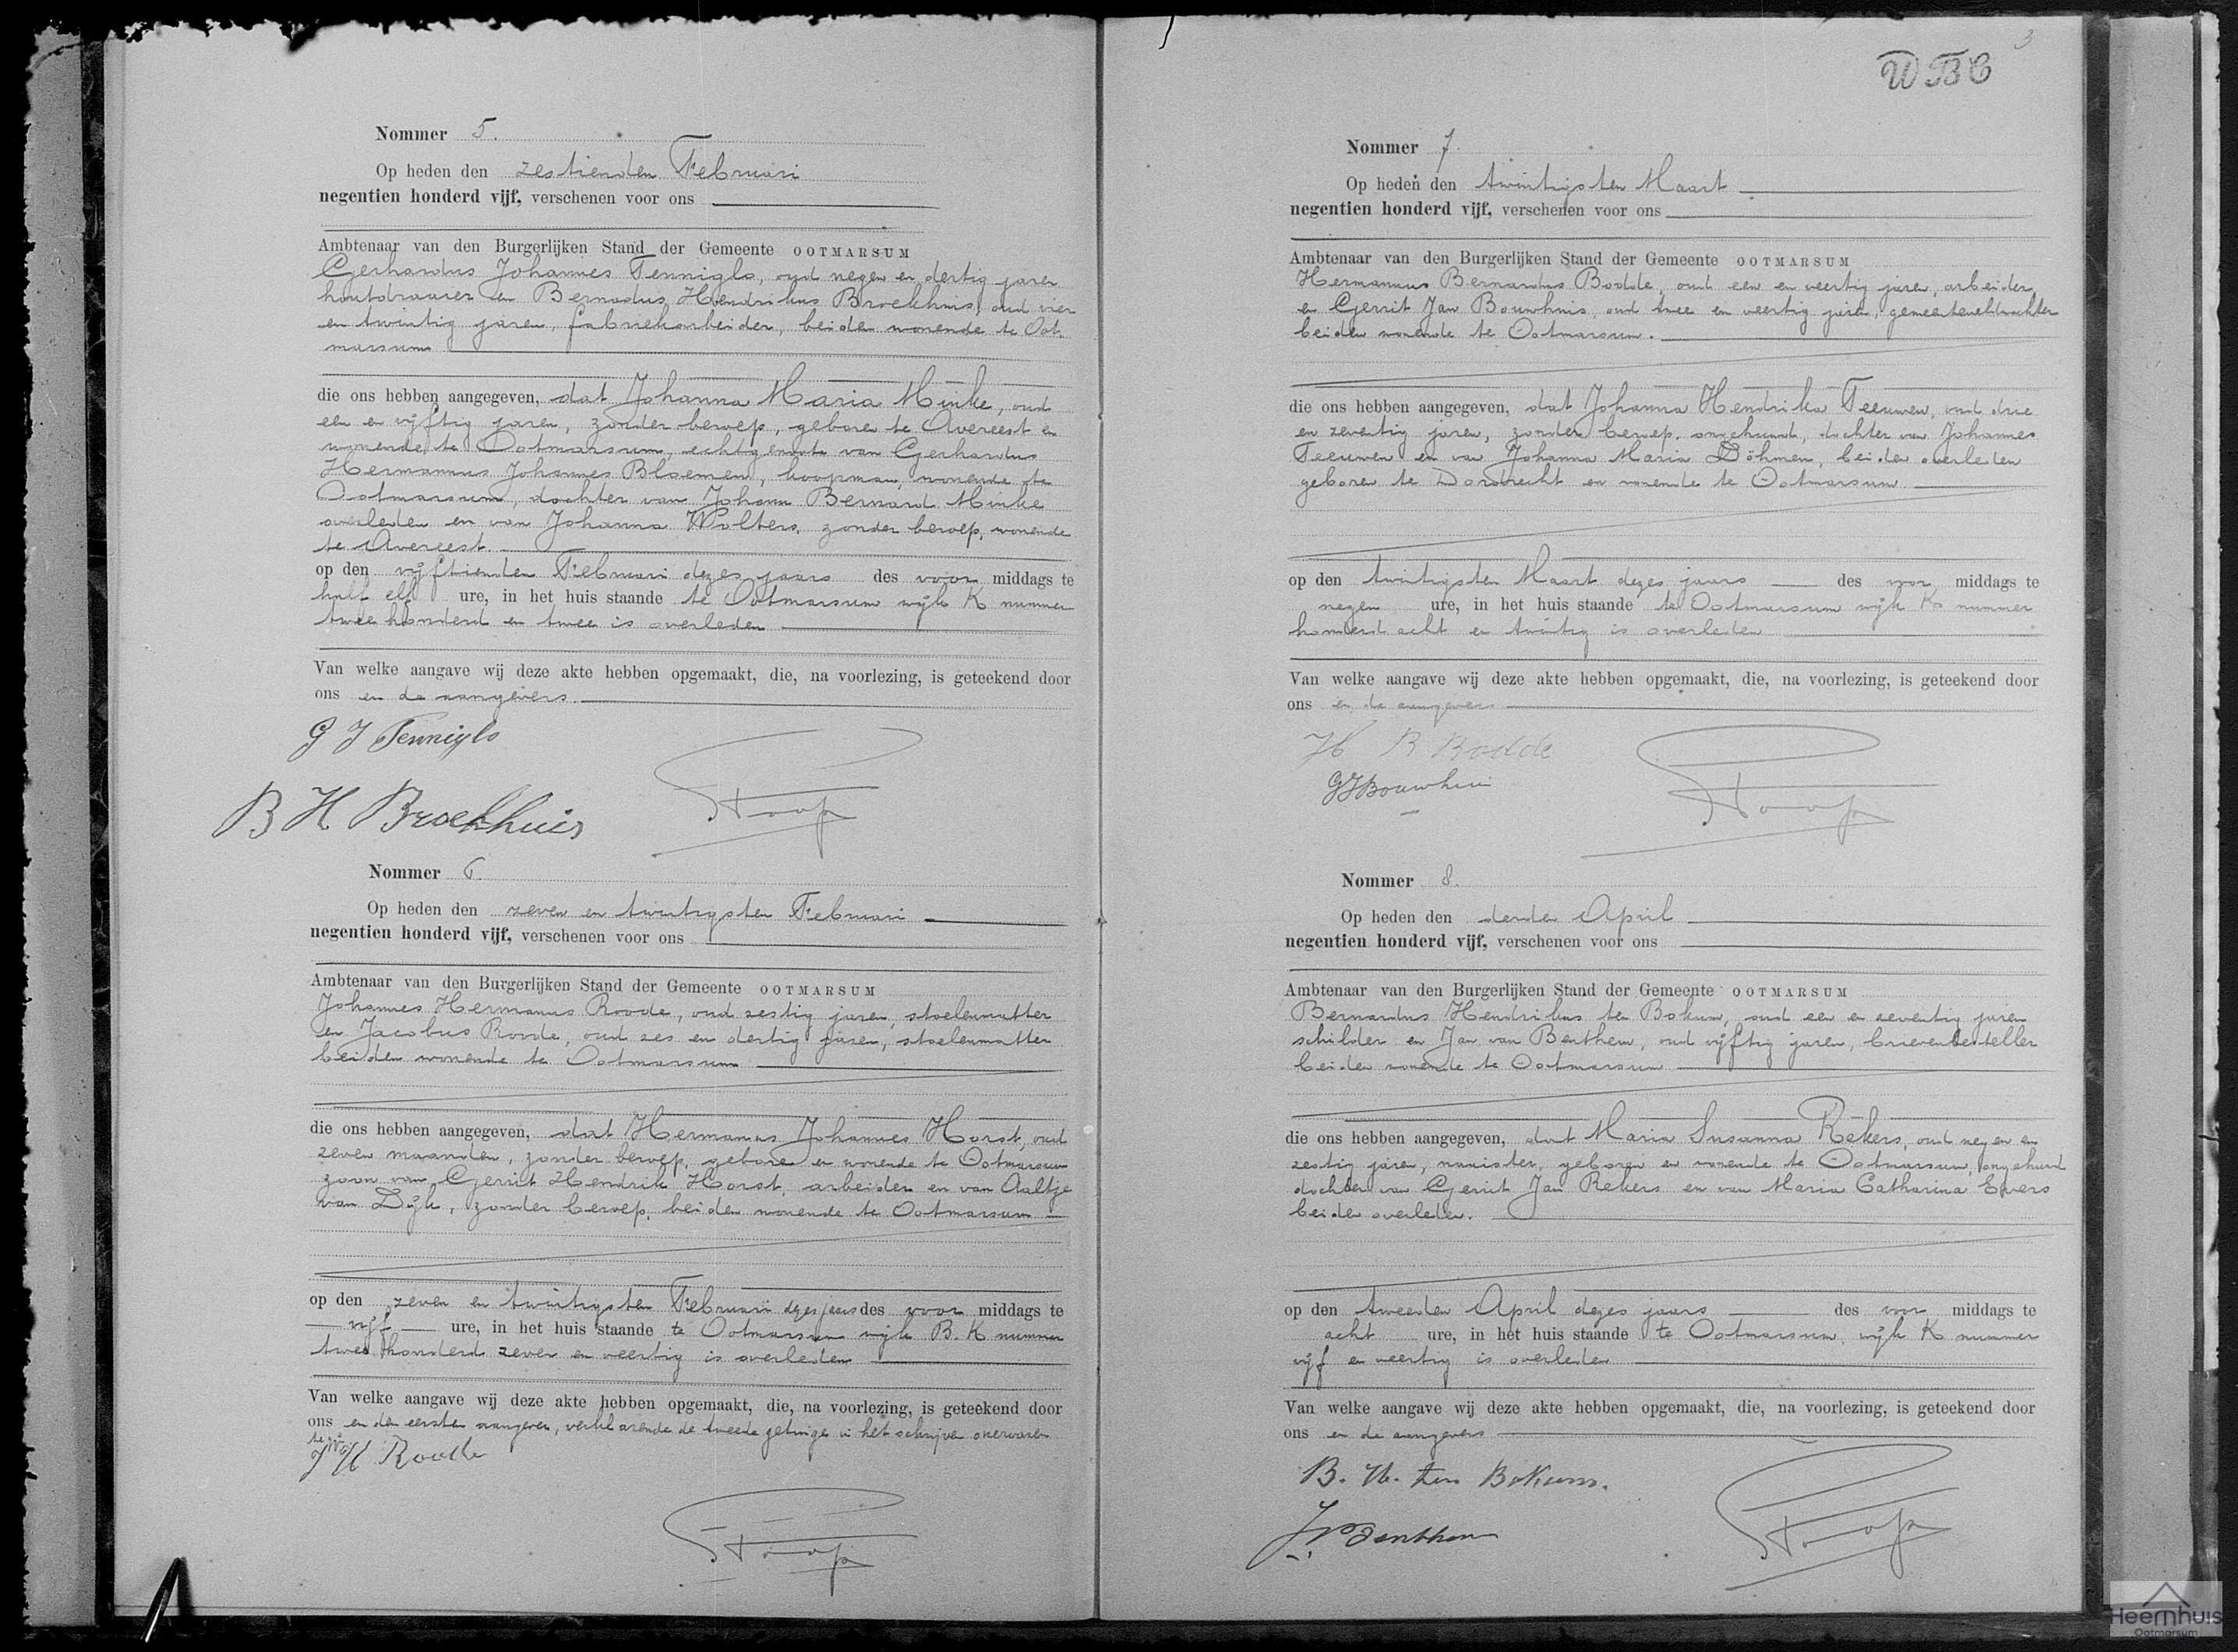 Nommer 5.
Op heden den zestienden Februari
negentien honderd vijf, verschenen voor ons
Ambtenaar van den Burgerlijken Stand der Gemeente OOTMARSUM
Gerhardus Johannes Tenniglo, oud negen en dertig jaren
houtdraaier en Bernardus Hendrikus Broekhuis, oud vier
en twintig jaren, fabriekarbeider, beiden wonende te Oot
marsum
die ons hebben aangegeven, dat Johanna Maria Minke, oud
een en vijftig jaren, zonder beroep, geboren te Avereest en
wonende te Ootmarsum, echtgenoote van Gerhardus
Hermannus Johannes Bloemen, koopman, wonende te
Ootmarsum, dochter van Johann Bernard Minke
overleden en van Johanna Wolters, zonder beroep, wonende
te Avereest.
op den vijftienden Februari dezes jaars des voor middags te
half elf ure, in het huis staande te Ootmarsum wijk K nummer
twee honderd en twee is overleden
Van welke aangave wij deze akte hebben opgemaakt, die, na voorlezing, is geteekend door
ons en de aangevers.
G J Tenniglo
B H Broekhuis
Stoop
Nommer 6.
Op heden den zeven en twintigsten Februari
negentien honderd vijf, verschenen voor ons
Ambtenaar van den Burgerlijken Stand der Gemeente OOTMARSUM
Johannes Hermanus Roode, oud zestig jaren, stoelenmatter
en Jacobus Roode, oud zes en dertig jaren, stoelenmatter
beiden wonende te Ootmarsum
die ons hebben aangegeven, dat Hermanus Johannes Horst, oud
zeven maanden, zonder beroep, geboren en wonende te Ootmarsum
zoon van Gerrit Hendrik Horst, arbeider en van Aaltje
van Dijk, zonder beroep, beiden wonende te Ootmarsum
op den zeven en twintigsten Februari dezes jaars des voor middags te
vijf ure, in het huis staande te Ootmarsum wijk B. K nummer
twee honderd zeven en veertig is overleden
Van welke aangave wij deze akte hebben opgemaakt, die, na voorlezing, is geteekend door
ons en den eersten aangever, verklarende de tweede getuige in het schrijven onervaren
te zijn
J H Roode
Stoop
3
WBC
Nommer 7.
Op heden den twintigsten Maart
negentien honderd vijf, verschenen voor ons
Ambtenaar van den Burgerlijken Stand der Gemeente OOTMARSUM
Hermannus Bernardus Bodde, oud een en veertig jaren, arbeider
en Gerrit Jan Bouwhuis, oud twee en veertig jaren, gemeenteveldwachter
beiden wonende te Ootmarsum.
die ons hebben aangegeven, dat Johanna Hendrika Teeuwen, oud drie
en zeventig jaren, zonder beroep, ongehuwd, dochter van Johannes
Teeuwen en van Johanna Maria Döhmen, beiden overleden
geboren te Dordrecht en wonende te Ootmarsum
op den twintigsten Maart dezes jaars des voor middags te
negen ure, in het huis staande te Ootmarsum wijk K nummer
honderd acht en twintig is overleden
Van welke aangave wij deze akte hebben opgemaakt, die, na voorlezing, is geteekend door
ons en de aangevers
H B Bodde
GJBouwhuis
Stoop
Nommer 8.
Op heden den derden April
negentien honderd vijf, verschenen voor ons
Ambtenaar van den Burgerlijken Stand der Gemeente OOTMARSUM
Bernardus Hendrikus ten Bokum, oud een en zeventig jaren
schilder en Jan van Benthem, oud vijftig jaren, brievenbesteller
beiden wonende te Ootmarsum
die ons hebben aangegeven, dat Maria Susanna Rekers, oud negen en
zestig jaren, naaister, geboren en wonende te Ootmarsum, ongehuwd
dochter van Gerrit Jan Rekers en van Maria Catharina Evers
beiden overleden.
op den tweeden April dezes jaars des voor middags te
acht ure, in het huis staande te Ootmarsum, wijk K nummer
vijf en veertig is overleden
Van welke aangave wij deze akte hebben opgemaakt, die, na voorlezing, is geteekend door
ons en de aangevers
B. H. ten Bokum.
J v Benthem
Stoop
Heernhuis
Ootmarsum